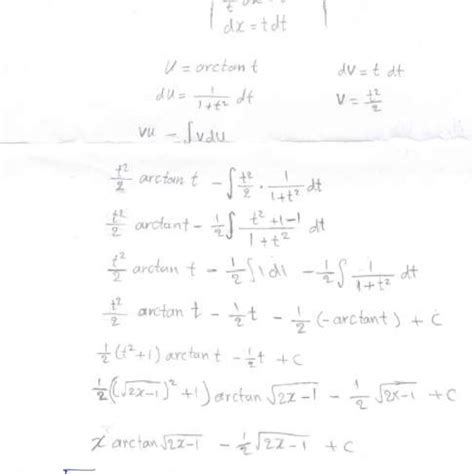 dx = t dt
U = arctan t dV = t dt
du = 1/(1+t²) dt V = t²/2
vu - ∫vdu
t²/2 arctan t - ∫ t²/2 · 1/(1+t²) dt
t²/2 arctant - 1/2 ∫ (t²+1-1)/(1+t²) dt
t²/2 arctan t - 1/2 ∫1d1 - 1/2 ∫ 1/(1+t²) dt
t²/2 arctan t - 1/2 t - 1/2 (-arctant) + C
1/2 (t²+1) arctan t - 1/2 t + C
1/2 ((√(2x-1))² + 1) arctan √(2x-1) - 1/2 √(2x-1) + C
x arctan √(2x-1) - 1/2 √(2x-1) + C